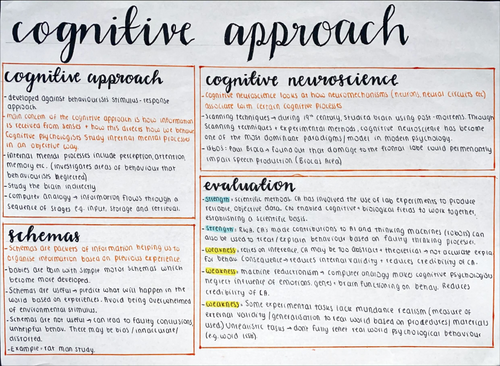 cognitive approach
cognitive approach
- developed against behaviourists stimulus-response
approach.
- main concern of the cognitive approach is how information
is received from senses + how this affects how we behave.
Cognitive psychologists study internal mental processes
in an objective way.
- internal mental processes include perception, attention,
memory etc. (investigates areas of behaviour that
behaviourists neglected)
- Study the brain indirectly
- Computer analogy → information flows through a
sequence of stages e.g. input, storage and retrieval.
schemas
- Schemas are packets of information helping us to
organise information based on previous experience.
- babies are born with simple motor schemas which
become more developed.
- Schemas are useful → predict what will happen in the
world based on experiences. Avoid being overwhelmed
of environmental stimulus.
- Schemas are not useful → can lead to faulty conclusions,
unhelpful behav. There may be bias/innaccurate/
distorted.
- Example - rat man study.
cognitive neuroscience
- Cognitive neuroscience looks at how neuromechanisms (neurons, neural circuits etc)
associate with certain cognitive processes
- Scanning techniques → during 19th century, studied brain using post-mortems. Through
Scanning techniques + experimental methods, cognitive neuroscience has become
one of the most dominant paradigms/model in modern psychology.
- 1860s: Paul Broca → found that damage to the frontal lobe could permanently
impair speech production (Brocas Area)
evaluation
- strength - scientific methods. CA has involved the use of lab experiments to produce
reliable, objective data. CN enabled cognitive + biological fields to work together,
establishing a scientific basis.
- strength - RWA. CA made contributions to AI and thinking machines (robots) can
also be used to treat/explain behaviour based on faulty thinking processes.
- weakness - relies on inference. CA may be too abstract + theoretical → not accurate expla
for behav. Consequence → reduces internal validity + reduces credibility of CA.
- weakness - machine reductionism → computer analogy makes cognitive psychologists
neglect influence of emotions, genes + brain functioning on behav. Reduces
credibility of CA.
- weakness - Some experimental tasks lack mundane realism (measure of
external validity/generalisation to real world based on procedures/materials
used) Unrealistic tasks → don't fully reflect real world psychological behaviour
(e.g. word lists)